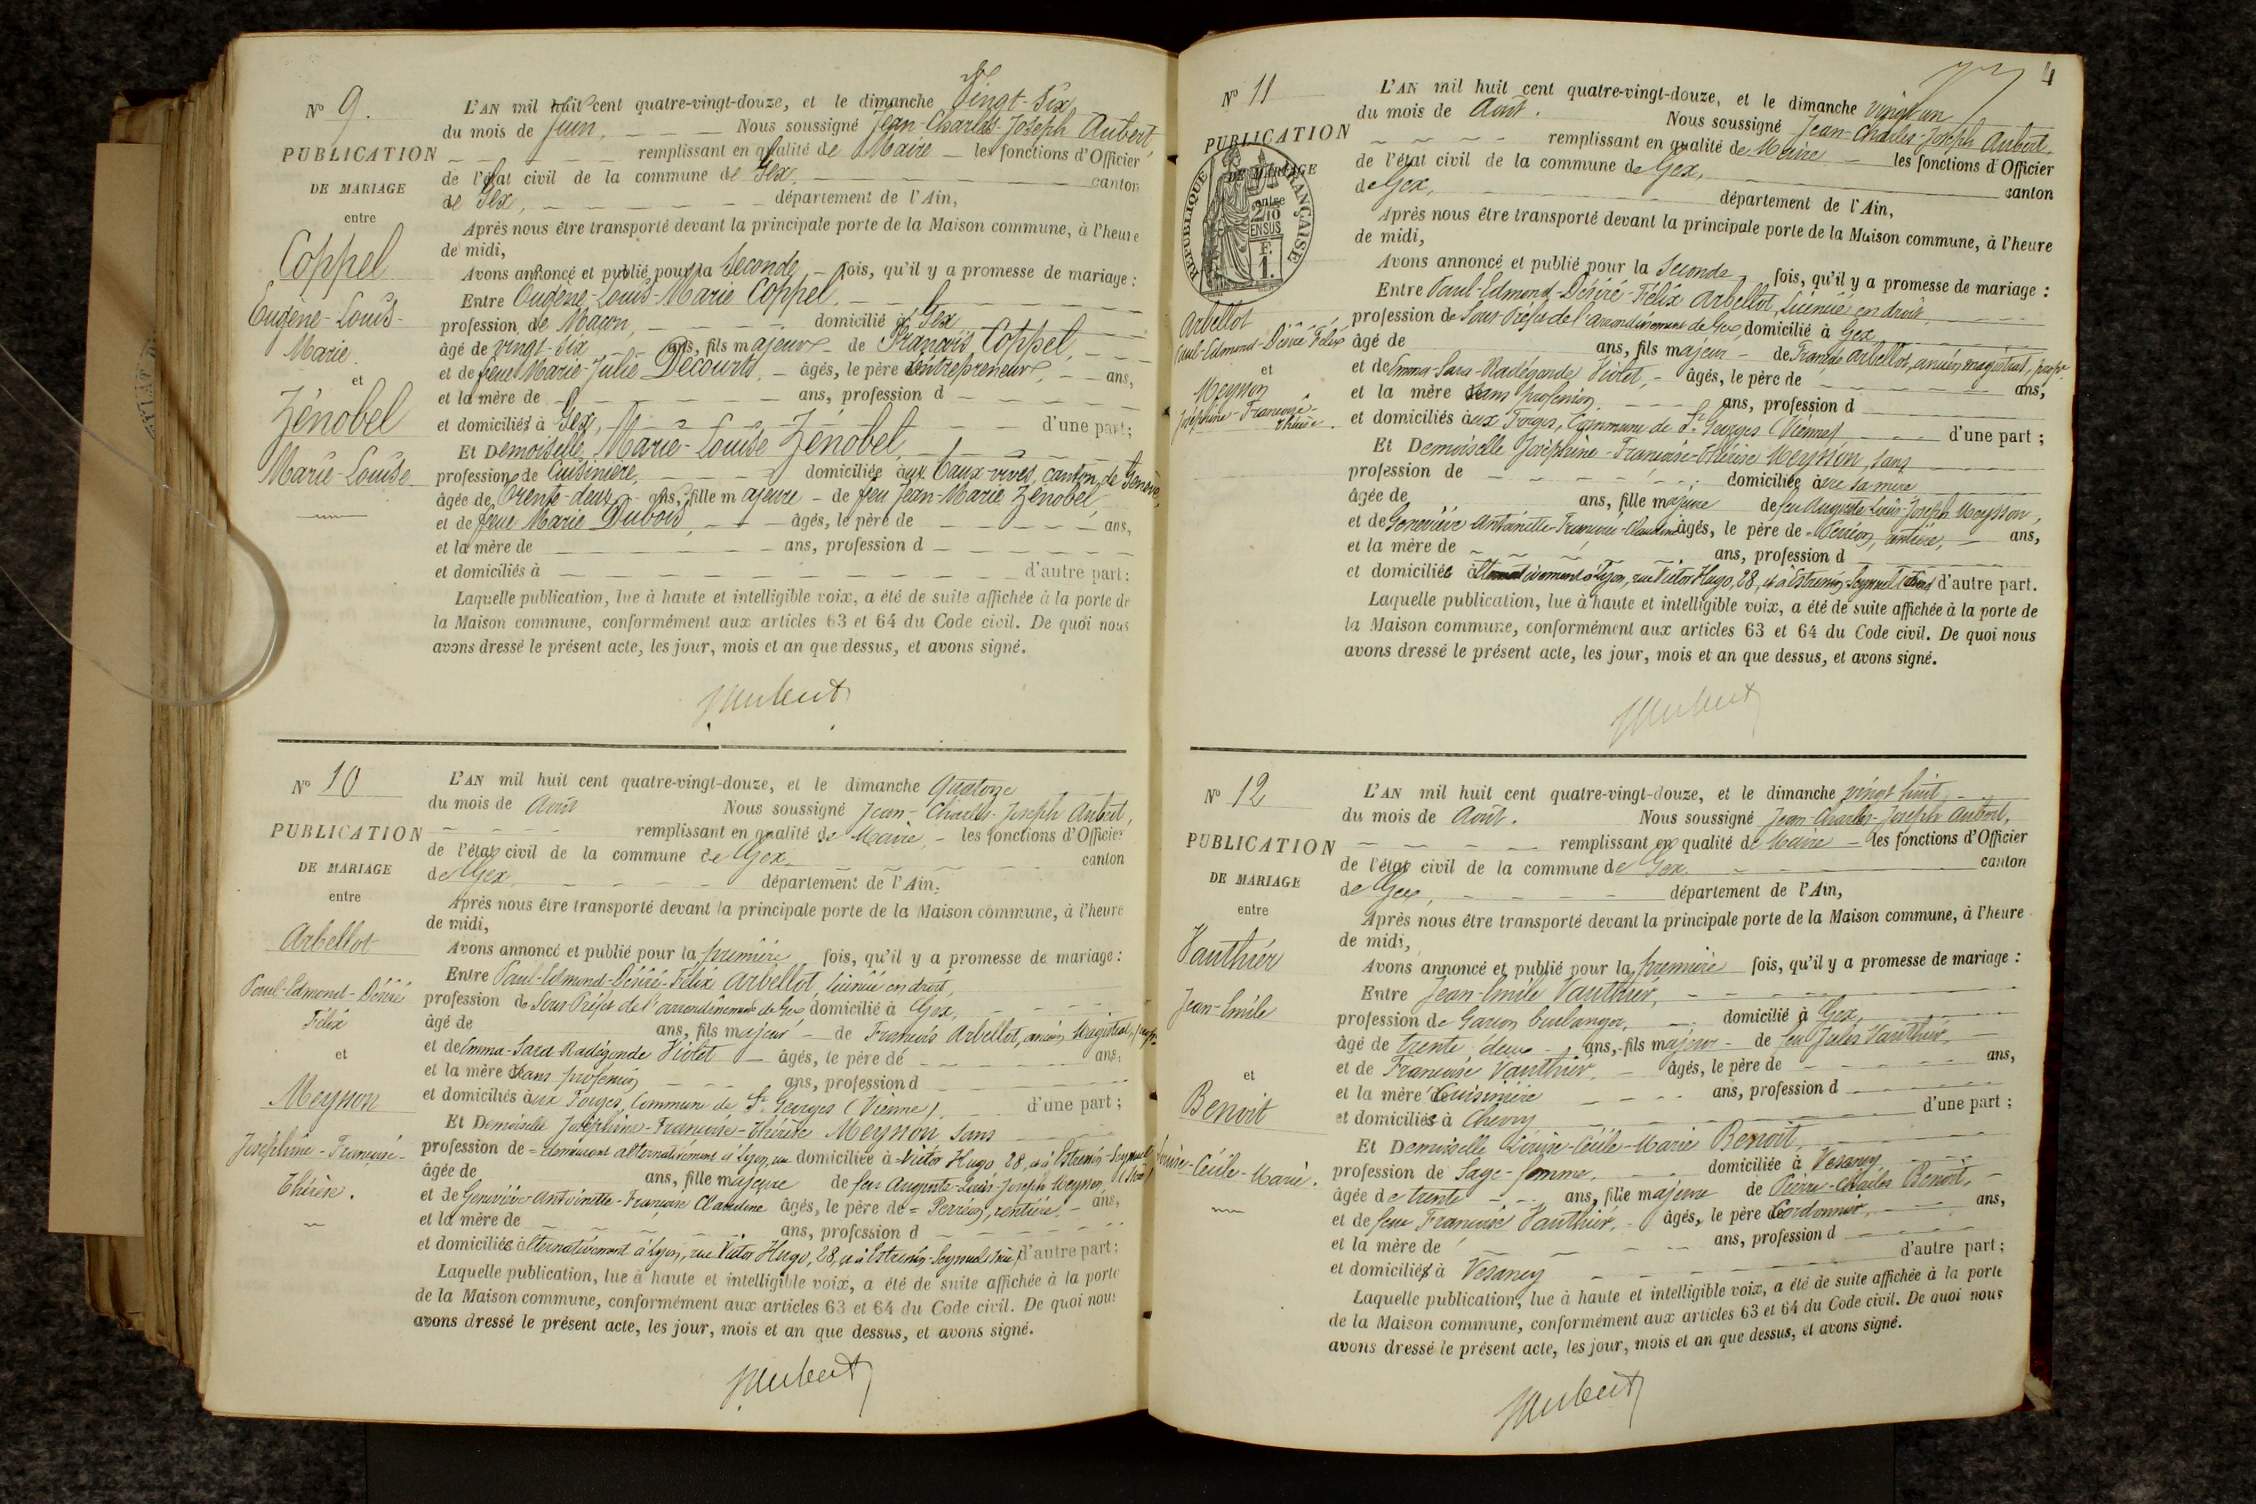 Nº 9.
PUBLICATION
DE MARIAGE
entre
Coppel
Eugène-Louis-
Marie.
et
Zénobel
Marie-Louise
L'AN mil huit cent quatre-vingt-douze, et le dimanche Vingt-Six
du mois de Juin. Nous soussigné Jean-Charles-Joseph Aubert,
remplissant en qualité de Maire les fonctions d'Officier
de l'état civil de la commune de Gex, canton
de Gex, département de l'Ain,
Après nous être transporté devant la principale porte de la Maison commune, à l'heure
de midi,
Avons annoncé et publié pour la Seconde fois, qu'il y a promesse de mariage :
Entre Eugène-Louis-Marie Coppel,
profession de Maçon, domicilié à Gex
âgé de vingt-six ans, fils majeur de François Coppel,
et de feue Marie-Julie Décourts, âgés, le père entrepreneur, ans,
et la mère de ans, profession d
et domiciliés à Gex, d'une part;
Et Demoiselle Marie-Louise Zénobel,
profession de Cuisinière, domiciliée aux Eaux-vives, canton de Genève,
âgée de Trente-deux ans, fille majeure de feu Jean-Marie Zénobel,
et de feue Marie Dubois, âgés, le père de ans,
et la mère de ans, profession d
et domiciliés à d'autre part:
Laquelle publication, lue à haute et intelligible voix, a été de suite affichée à la porte de
la Maison commune, conformément aux articles 63 et 64 du Code civil. De quoi nous
avons dressé le présent acte, les jour, mois et an que dessus, et avons signé.
JAubert
Nº 10
PUBLICATION
DE MARIAGE
entre
Arbellot
Paul-Edmond-Désiré
Félix
et
Meynson
Joséphine-Françoise-
Thérèse.
L'AN mil huit cent quatre-vingt-douze, et le dimanche Quatorze
du mois de Août Nous soussigné Jean-Charles-Joseph Aubert,
remplissant en qualité de Maire, les fonctions d'Officier
de l'état civil de la commune de Gex canton
de Gex département de l'Ain,
Après nous être transporté devant la principale porte de la Maison commune, à l'heure
de midi,
Avons annoncé et publié pour la première fois, qu'il y a promesse de mariage :
Entre Paul-Edmond-Désiré-Félix Arbellot, licencié en droit,
profession de Sous-Préfet de l'arrondissement de Gex, domicilié à Gex,
âgé de ans, fils majeur de François Arbellot, ancien Magistrat,
et de Emma-Sara-Radégonde Violet âgés, le père de ans,
et la mère sans profession ans, profession d
et domiciliés aux Forges, Commune de St Georges (Vienne). d'une part ;
Et Demoiselle Joséphine-Françoise-Thérèse Meynson, sans
profession de = demeurant alternativement à Lyon, rue domiciliée à = Victor Hugo, 28, et à
âgée de ans, fille majeure de feu Auguste-Louis-Joseph Meynson,
et de Geneviève-Antoinette-Françoise Claudine âgés, le père de = Perréon, rentière, ans,
et la mère de ans, profession d
et domiciliée alternativement à Lyon, rue Victor Hugo, 28, et à d'autre part:
Laquelle publication, lue à haute et intelligible voix, a été de suite affichée à la porte
de la Maison commune, conformément aux articles 63 et 64 du Code civil. De quoi nous
avons dressé le présent acte, les jour, mois et an que dessus, et avons signé.
JAubert
4
Nº 11
PUBLICATION
DE MARIAGE
entre
RÉPUBLIQUE FRANÇAISE
2/10
EN SUS
F.
1.
Arbellot
Paul-Edmond-Désiré Félix
et
Meynson
Joséphine-Françoise-
Thérèse.
L'AN mil huit cent quatre-vingt-douze, et le dimanche vingt un
du mois de Août. Nous soussigné Jean-Charles-Joseph Aubert,
remplissant en qualité de Maire les fonctions d'Officier
de l'état civil de la commune de Gex, canton
de Gex, département de l'Ain,
Après nous être transporté devant la principale porte de la Maison commune, à l'heure
de midi,
Avons annoncé et publié pour la Seconde fois, qu'il y a promesse de mariage :
Entre Paul-Edmond-Désiré-Félix Arbellot, licencié en droit
profession de Sous Préfet de l'arrondissement de Gex, domicilié à Gex
âgé de ans, fils majeur de François Arbellot, ancien magistrat,
et de Emma-Sara-Radégonde Violet, âgés, le père de ans,
et la mère sans profession ans, profession d
et domiciliés aux Forges, Commune de St Georges (Vienne) d'une part ;
Et Demoiselle Joséphine-Françoise-Thérèse Meynson, sans
profession de domiciliée avec sa mère
âgée de ans, fille majeure de feu Auguste Louis-Joseph Meynson,
et de Geneviève Antoinette-Françoise-Claudine âgés, le père de = Perréon, rentière, ans,
et la mère de ans, profession d
et domiciliée alternativement à Lyon, rue Victor Hugo, 28, et à d'autre part.
Laquelle publication, lue à haute et intelligible voix, a été de suite affichée à la porte de
la Maison commune, conformément aux articles 63 et 64 du Code civil. De quoi nous
avons dressé le présent acte, les jour, mois et an que dessus, et avons signé.
JAubert
Nº 12
PUBLICATION
DE MARIAGE
entre
Vauthier
Jean-Emile
et
Benoit
Louise-Cécile-Marie.
L'AN mil huit cent quatre-vingt-douze, et le dimanche vingt huit
du mois de Août. Nous soussigné Jean-Charles-Joseph Aubert,
remplissant en qualité de Maire les fonctions d'Officier
de l'état civil de la commune de Gex canton
de Gex, département de l'Ain,
Après nous être transporté devant la principale porte de la Maison commune, à l'heure
de midi,
Avons annoncé et publié pour la première fois, qu'il y a promesse de mariage :
Entre Jean-Emile Vauthier,
profession de Garçon boulanger, domicilié à Gex,
âgé de trente deux ans, fils majeur de feu Jules Vauthier,
et de Françoise Vauthier, âgés, le père de ans,
et la mère Cuisinière ans, profession d
et domiciliés à Chevry d'une part ;
Et Demoiselle Louise-Cécile-Marie Benoit,
profession de Sage-femme, domiciliée à Vesancy
âgée de trente ans, fille majeure de Pierre-Charles Benoit,
et de feue Françoise Vauthier, âgés, le père Cordonnier, ans,
et la mère de ans, profession d
et domiciliés à Vesancy d'autre part;
Laquelle publication, lue à haute et intelligible voix, a été de suite affichée à la porte
de la Maison commune, conformément aux articles 63 et 64 du Code civil. De quoi nous
avons dressé le présent acte, les jour, mois et an que dessus, et avons signé.
JAubert